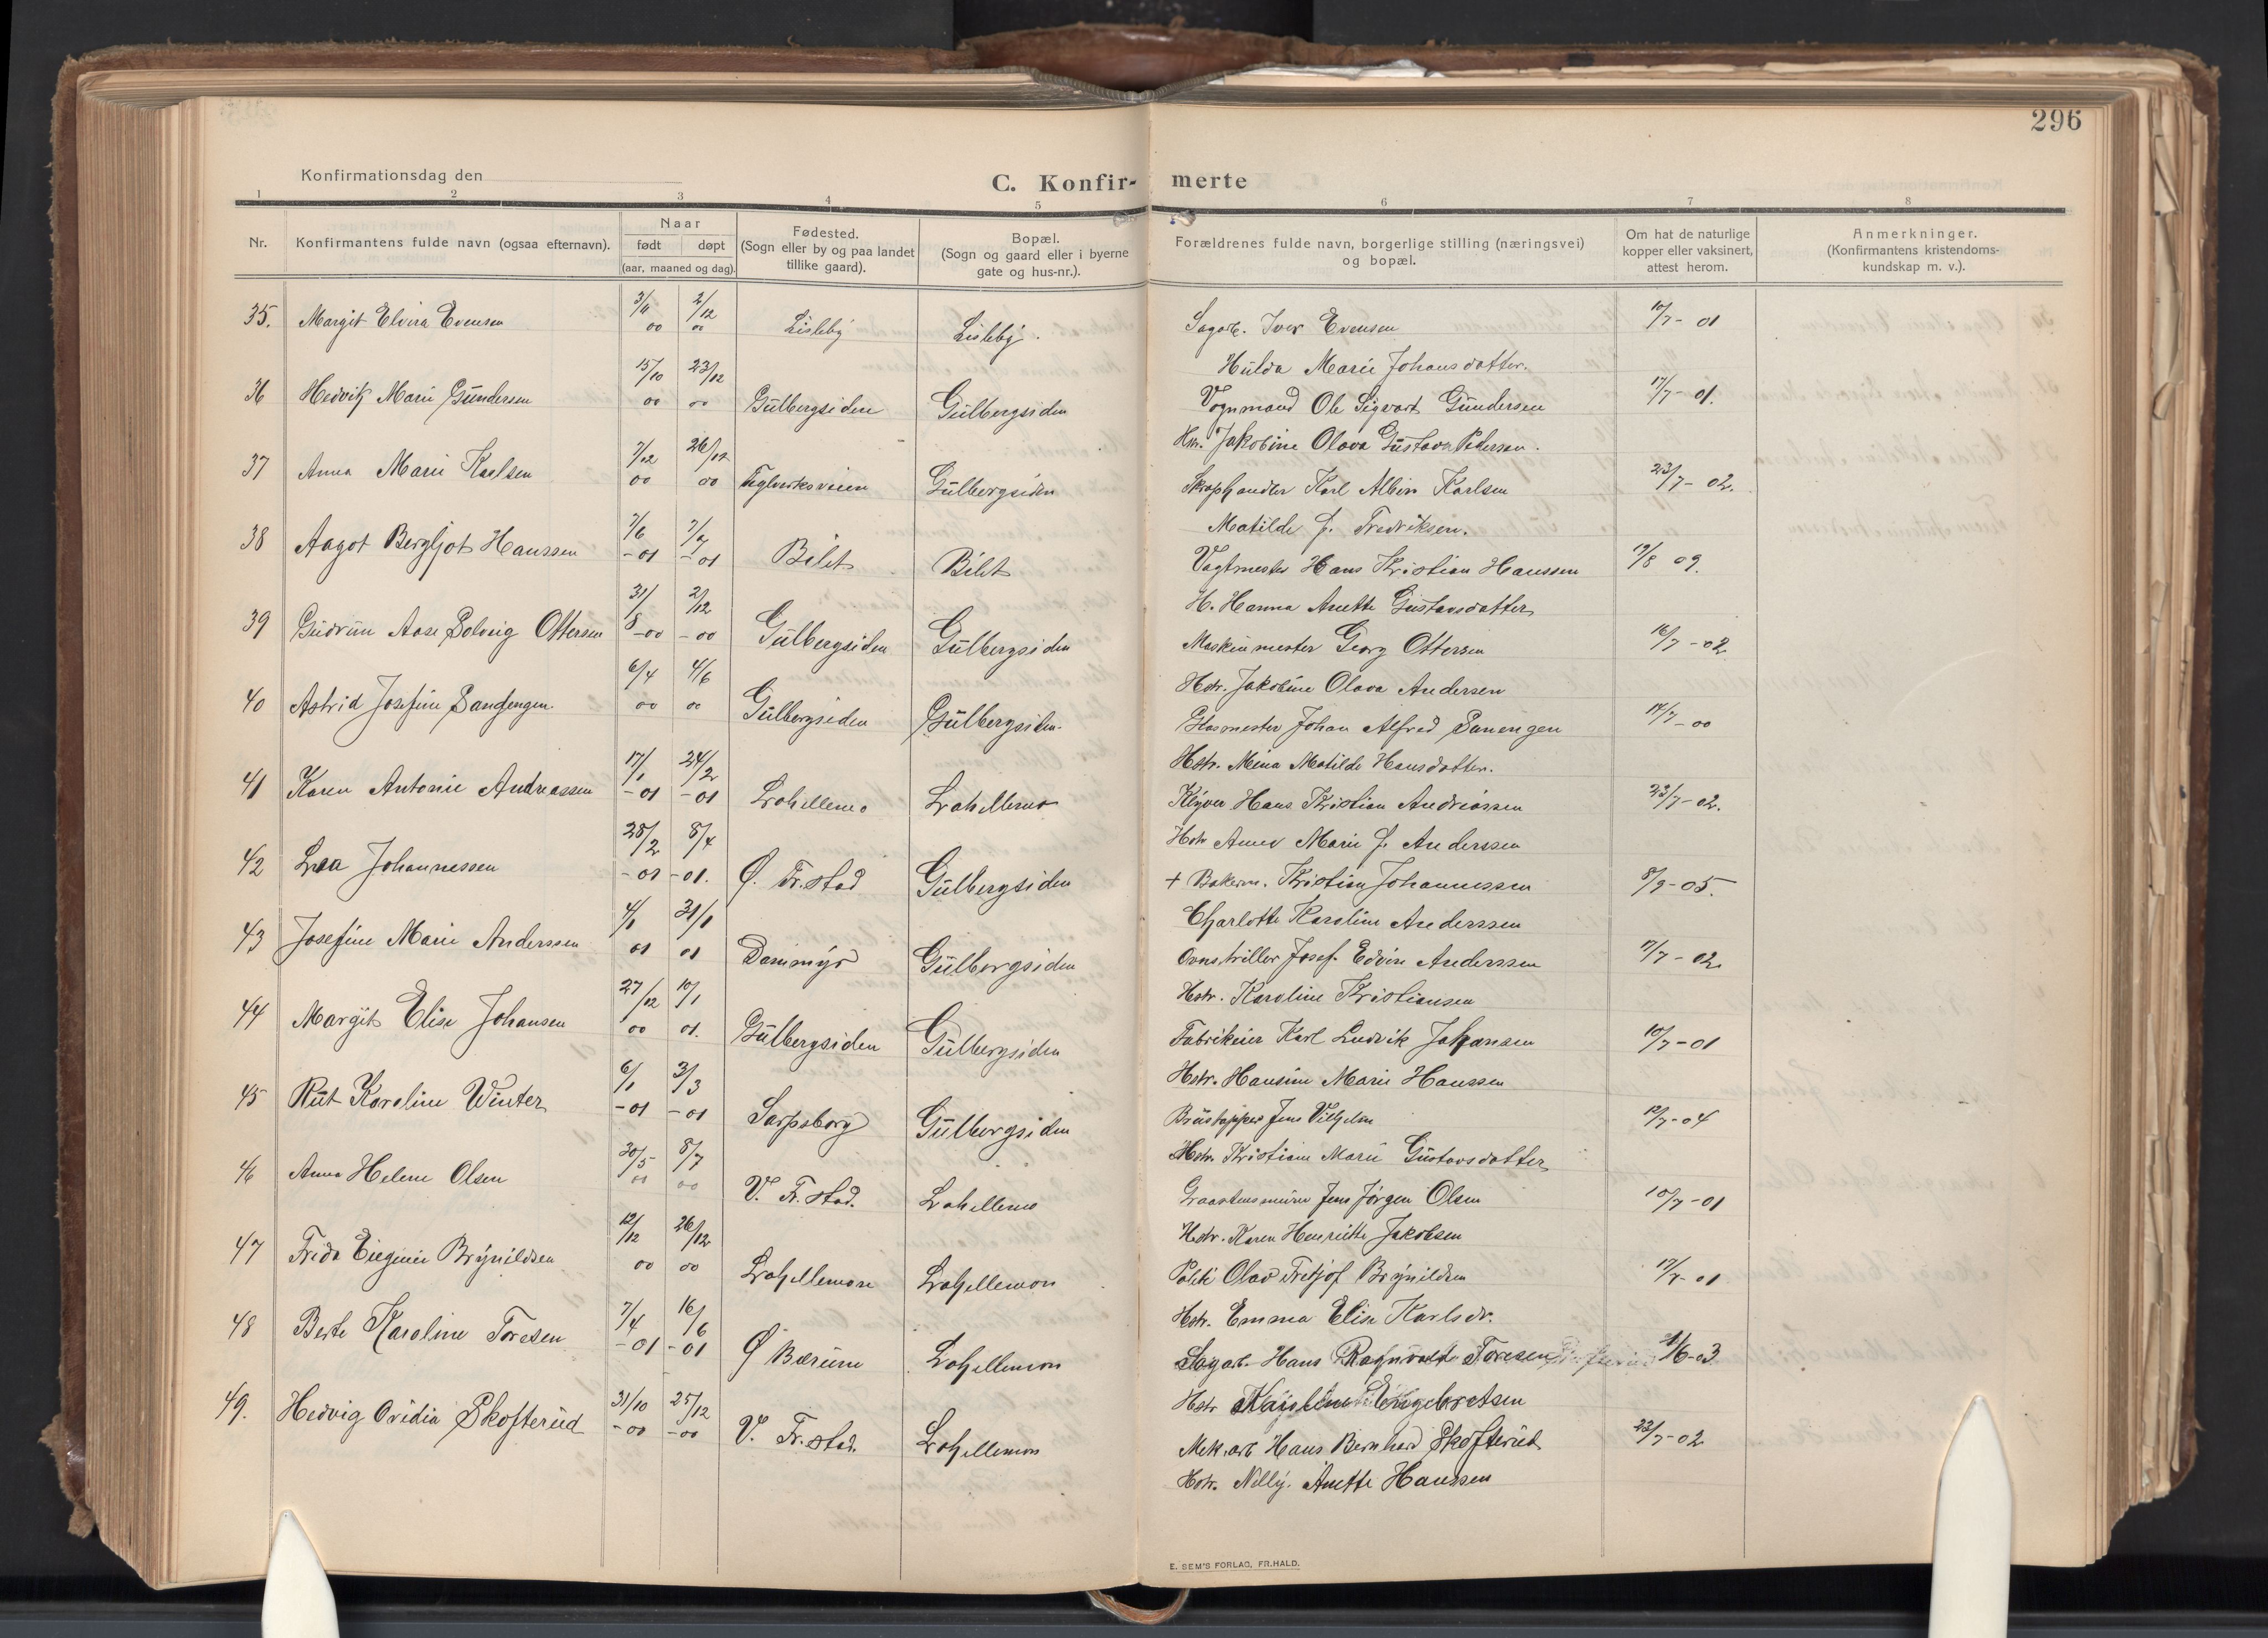 296
Konfirmationsdag den
C. Konfir- merte
1 2 3 4 5 6 7 8
Nr.
Konfirmantens fulde navn (ogsaa efternavn).
Naar
født døpt
(aar, maaned og dag).
Fødested.
(Sogn eller by og paa landet
tillike gaard).
Bopæl.
(Sogn og gaard eller i byerne
gate og hus-nr.).
Forældrenes fulde navn, borgerlige stilling (næringsvei)
og bopæl.
Om hat de naturlige
kopper eller vaksinert,
attest herom.
Anmerkninger.
(Konfirmantens kristendoms-
kundskap m. v.).
35. Margit Elvira Evensen 3/11 00 2/12 00 Lisleby Lisleby. Sagarb. Iver Evensen 10/7- 01
Hulda Marie Johansdatter.
36 Hedvik Marie Gundersen 15/10 00 23/12 00 Gulbergsiden Gulbergsiden Vognmand Ole Sigvart Gundersen 17/7- 01.
Hstr. Jakobine Olava Gustava Pedersen.
37 Anna Marie Karlsen 7/12 00 26/12 00 Teglverksveien Gulbergsiden Skraphandler Karl Albin Karlsen 23/7- 02.
Matilde f. Fredriksen.
38 Aagot Bergljot Hanssen 7/6 -01 7/7 -01 Bilet Bilet Vagtmester Hans Kristian Hanssen 19/8 09.
H. Hanna Anette Gustavsdatter
39 Gudrun Aase Solveig Ottersen 31/8 -00 2/12 -00 Gulbergsiden Gulbergsiden Maskinmester Georg Ottersen 16/7 -02
Hstr. Jakobine Olava Andersen
40 Astrid Josefine Sandengen 6/4 00 4/6 00 Gulbergsiden Gulbergsiden. Glasmester Johan Alfred Sanengen 17/7 -00
Hstr. Mina Matilde Hansdatter.
41 Karen Antonie Andreassen 17/1 -01 24/2 -01 Lrahellemo Lrahellemo Kløver Hans Kristian Andreassen 23/7-02.
Hstr Anna Marie f. Anderssen
42 Lea Johannessen 28/2 -01 8/4 -01. Ø. Fr.stad Gulbergsiden + Bakerm. Kristian Johannessen 8/9-05.
Charlotte Karoline Anderssen
43 Josefine Marie Anderssen 4/1 01 31/1 01 Dammyr Gulbergsiden Ovnstriller Josef Edvin Anderssen 17/7-02
Hstr. Karoline Kristiansen
44 Margit Elise Johansen 27/12 00 10/1 01. Gulbergsiden Gulbergsiden Fabrikeier Karl Ludvik Johansen 10/7-01
Hstr. Hansine Marie Hanssen
45 Rut Karoline Winter 6/1 -01 3/3 -01 Sarpsborg Gulbergsiden Brustapper Jens Vilhelm 12/7-04
Hstr. Kristiane Marie Gustavsdatter
46 Anna Helene Olsen 20/5 8/7 00 V. Fr.stad. Lrahellemo Graastensmurer Jens Jørgen Olsen 10/7-01
Hstr. Karen Henriette Jakobsen
47 Frida Eugenie Brynildsen 12/12 00 26/12 00 Lrahellemoen Lrahellemoen Politi Olav Fritjof Brynildsen 17/7-01
Hstr. Emma Elise Karlsdr.
48 Berte Karoline Toresen 7/4 -01 16/6 -01 Ø Bærum Lrahellemoen Sagarb. Hans Ragnvald Toresen /6-03
Hstr Engebretsen
49. Hedvig Ovidia Skofterud 31/10 -00 25/12 -00 V. Fr.stad. Lrahellemoen Mek.arb Hans Bernhard Skofterud 23/7-02
Hstr. Nelly Anette Hanssen
E. SEM'S FORLAG, FR.HALD.